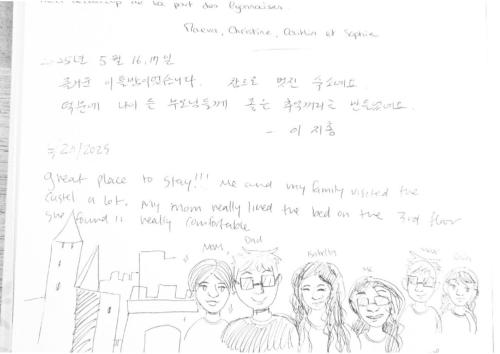 de la part des Lyonnaises.
Maeva, Christine, Caitlin et Sophie
2025년 5월 16, 17일
즐거운 이틀밤이었습니다. 참으로 멋진 숙소네요.
덕분에 나이 든 부모님들께 좋은 추억거리를 만들었네요.
- 이 지홍
5/20/2025
great place to stay!!! Me and my family visited the
castel a lot. My mom really liked the bed on the 3rd floor
she found it really comfortable
Mom Dad Isabella Me